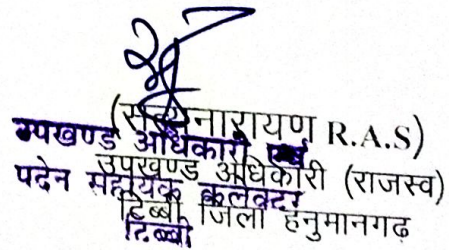 (सत्यनारायण R.A.S)
उपखण्ड अधिकारी एवं
उपखण्ड अधिकारी (राजस्व)
पदेन सहायक कलक्टर
टिब्बी जिला हनुमानगढ़
टिब्बी